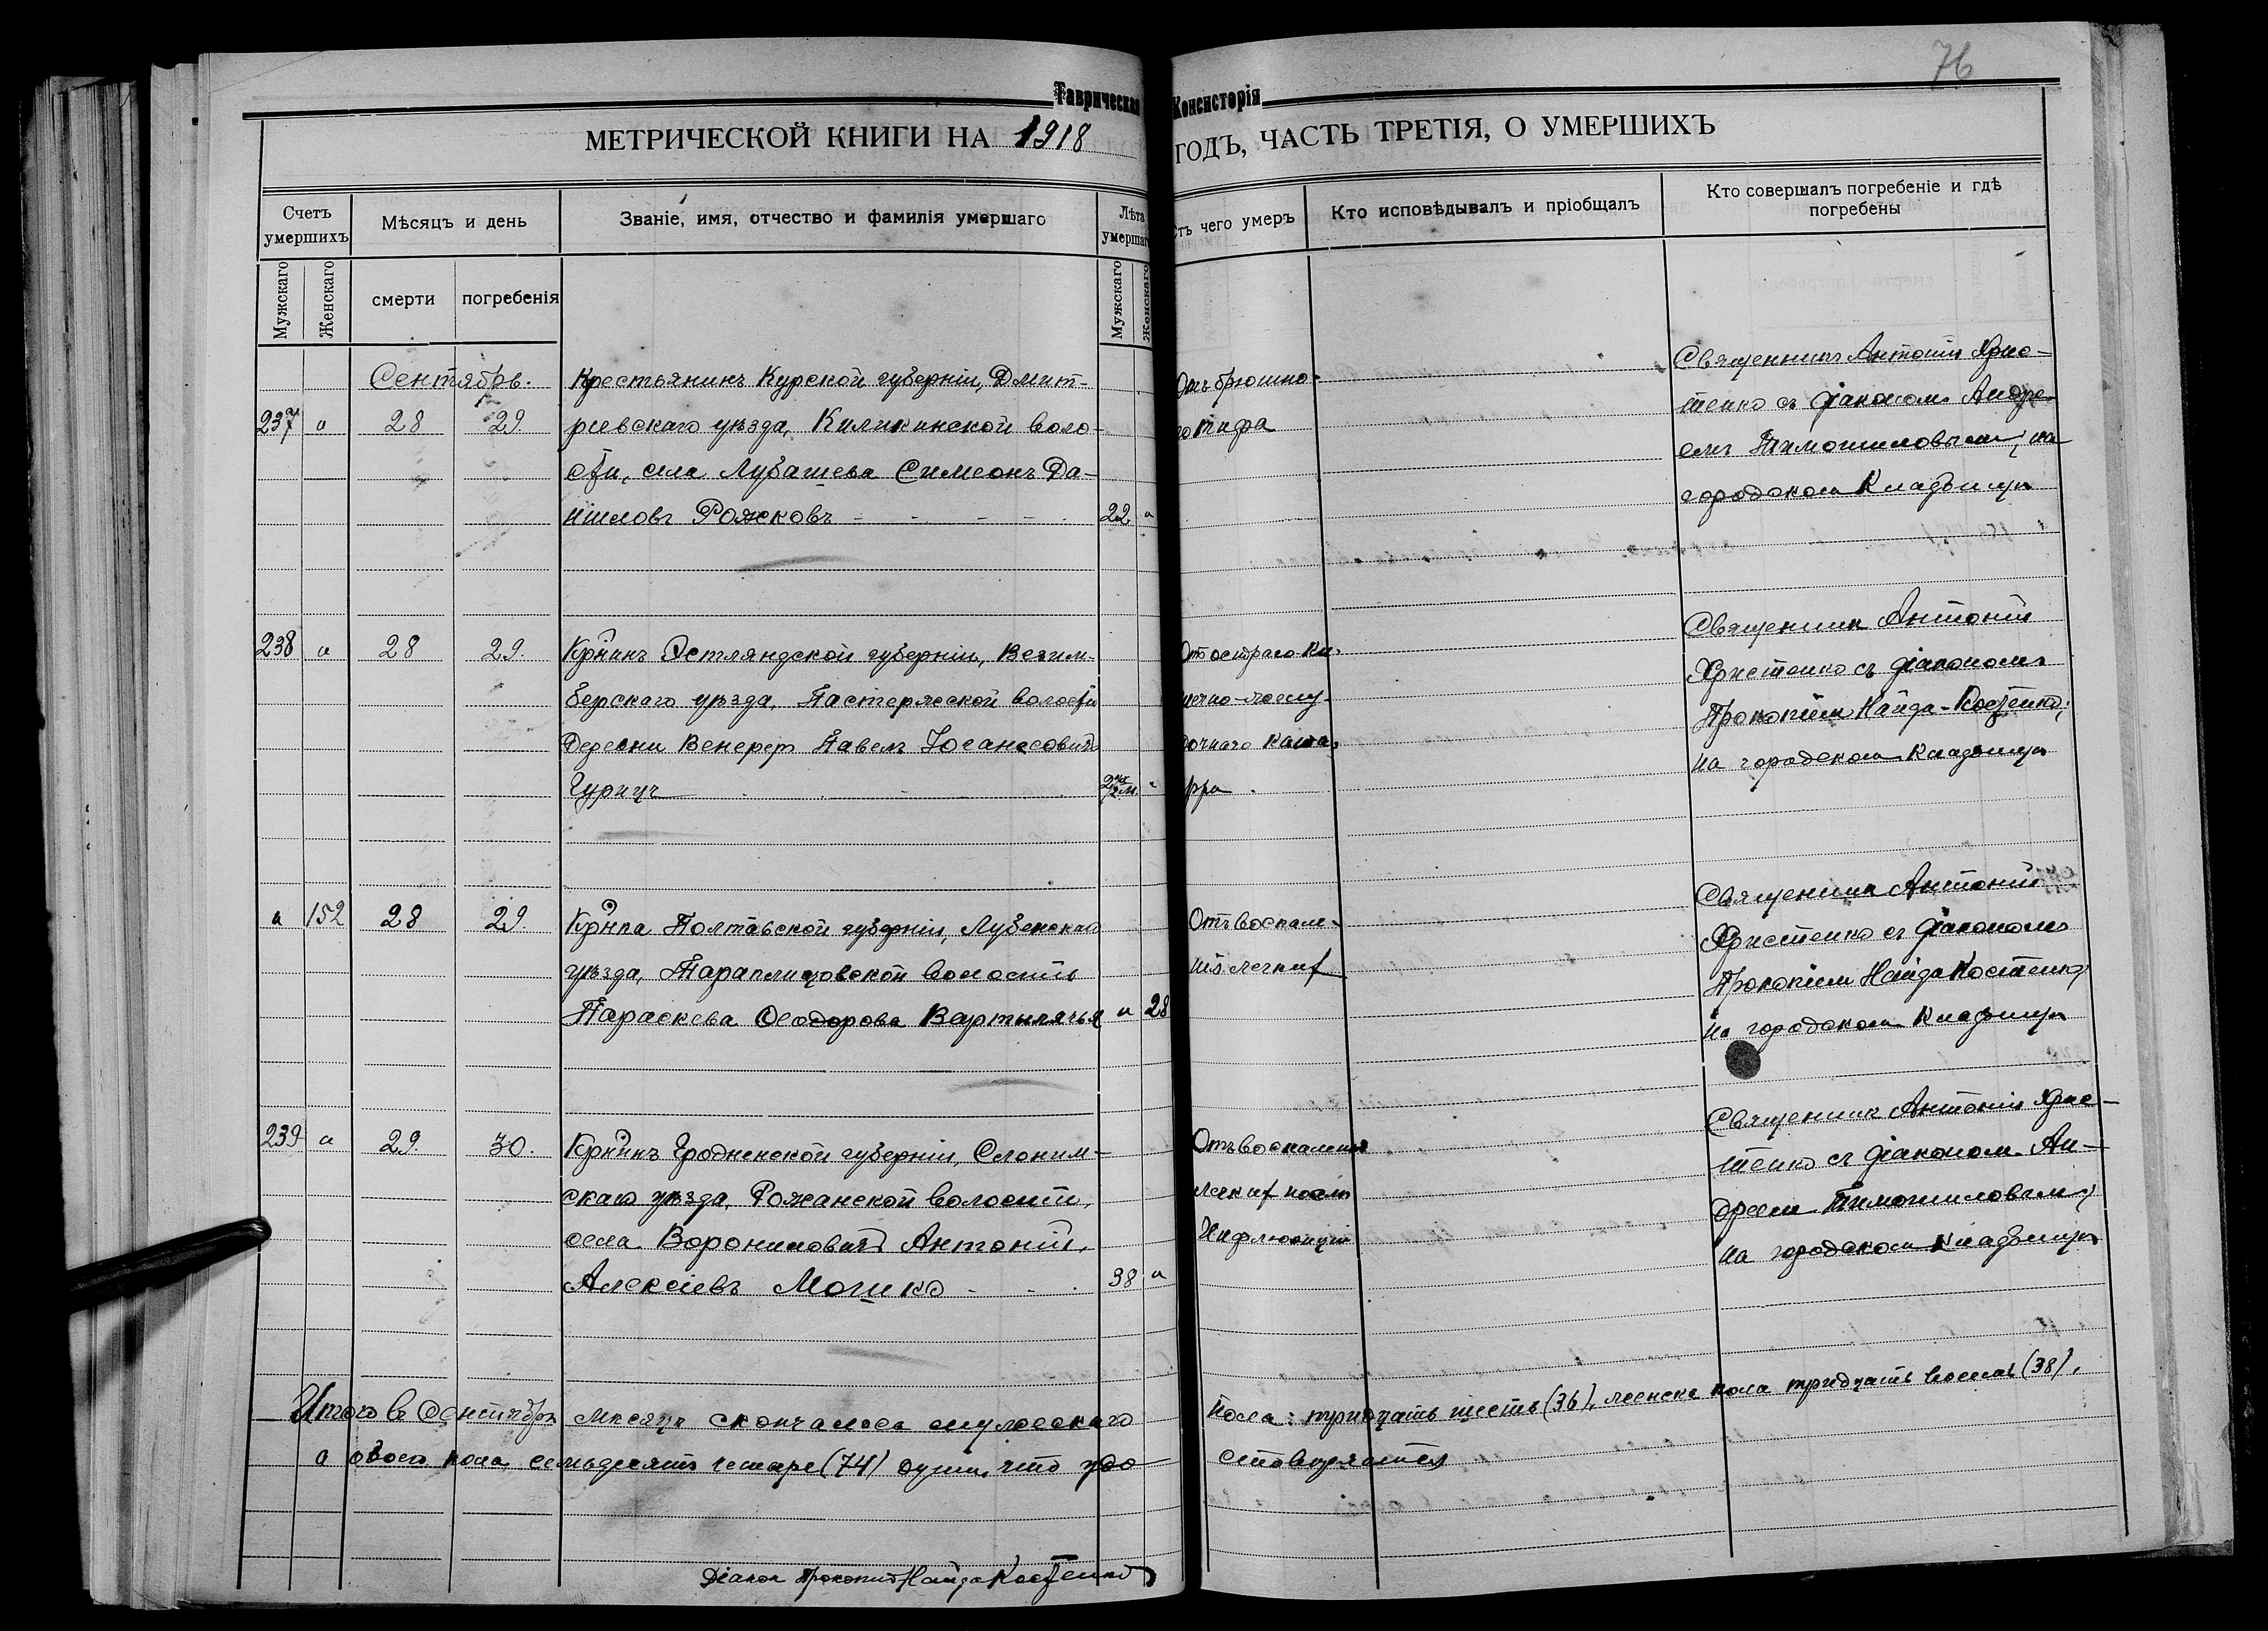 76
Таврическая Консисторія
МЕТРИЧЕСКОЙ КНИГИ НА 1918 ГОДЪ, ЧАСТЬ ТРЕТІЯ, О УМЕРШИХЪ
Счетъ умершихъ
Мѣсяцъ и день
Званіе, имя, отчество и фамилія умершаго
Лѣта умершаго
Отъ чего умеръ
Кто исповѣдывалъ и пріобщалъ
Кто совершалъ погребеніе и гдѣ погребены
Мужскаго
Женскаго
смерти
погребенія
Мужскаго
Женскаго
Сентябрь.
237 " 28 29.
Крестьянинъ Курской губерніи, Дмит-
ріевскаго уѣзда, Киликинской воло-
сти, села Лубашева Симеонъ Да-
ніиловъ Рожковъ
22 "
Отъ брюшно-
го тифа
Священникъ Антоній Хрис-
тенко съ діакономъ Андре-
емъ Тимошиловымъ, на
городском Кладбищѣ
238 " 28 29.
Кр-нинъ Эстляндской губерніи, Везим-
берскаго уѣзда, волости
Деревни Венерер Павелъ
Гуринг
2 м. "
От остраго ки-
шечно-желу-
дочнаго ката-
рра
Священник Антоній
Христенко съ діакономъ
Прокопіем Найда-Костенко,
на городском кладбищѣ
" 152 28 29.
Кр-нка Полтавской губерніи, Лубенскаго
уѣзда, волости
Параскева Ѳеодорова
" 28
Отъ воспале-
нія легких
Священник Антоній
Христенко съ діакономъ
Прокопіем Найда Костенко,
на городском кладбищѣ
239 " 29. 30.
Кр-нинъ Гродненской губерніи, Слоним-
скаго уѣзда, Рожанской волости,
села Ворониловичъ Антоній,
Алексіевъ Мошко
38 "
Отъ воспаления
легких послѣ
Инфлюэнціи
Священник Антоній Хрис-
тенко съ діаконом Ан-
дреем Тимошиловым,
на городском кладбищѣ
Итого в Сентябрѣ мѣсяцѣ скончалось мужескаго пола: тридцать шесть (36), женска пола тридцать восемь (38),
а обоего пола семьдесятъ четыре (74) души, что удо-
стовѣряется
Діакон Прокопий Найда Костенко